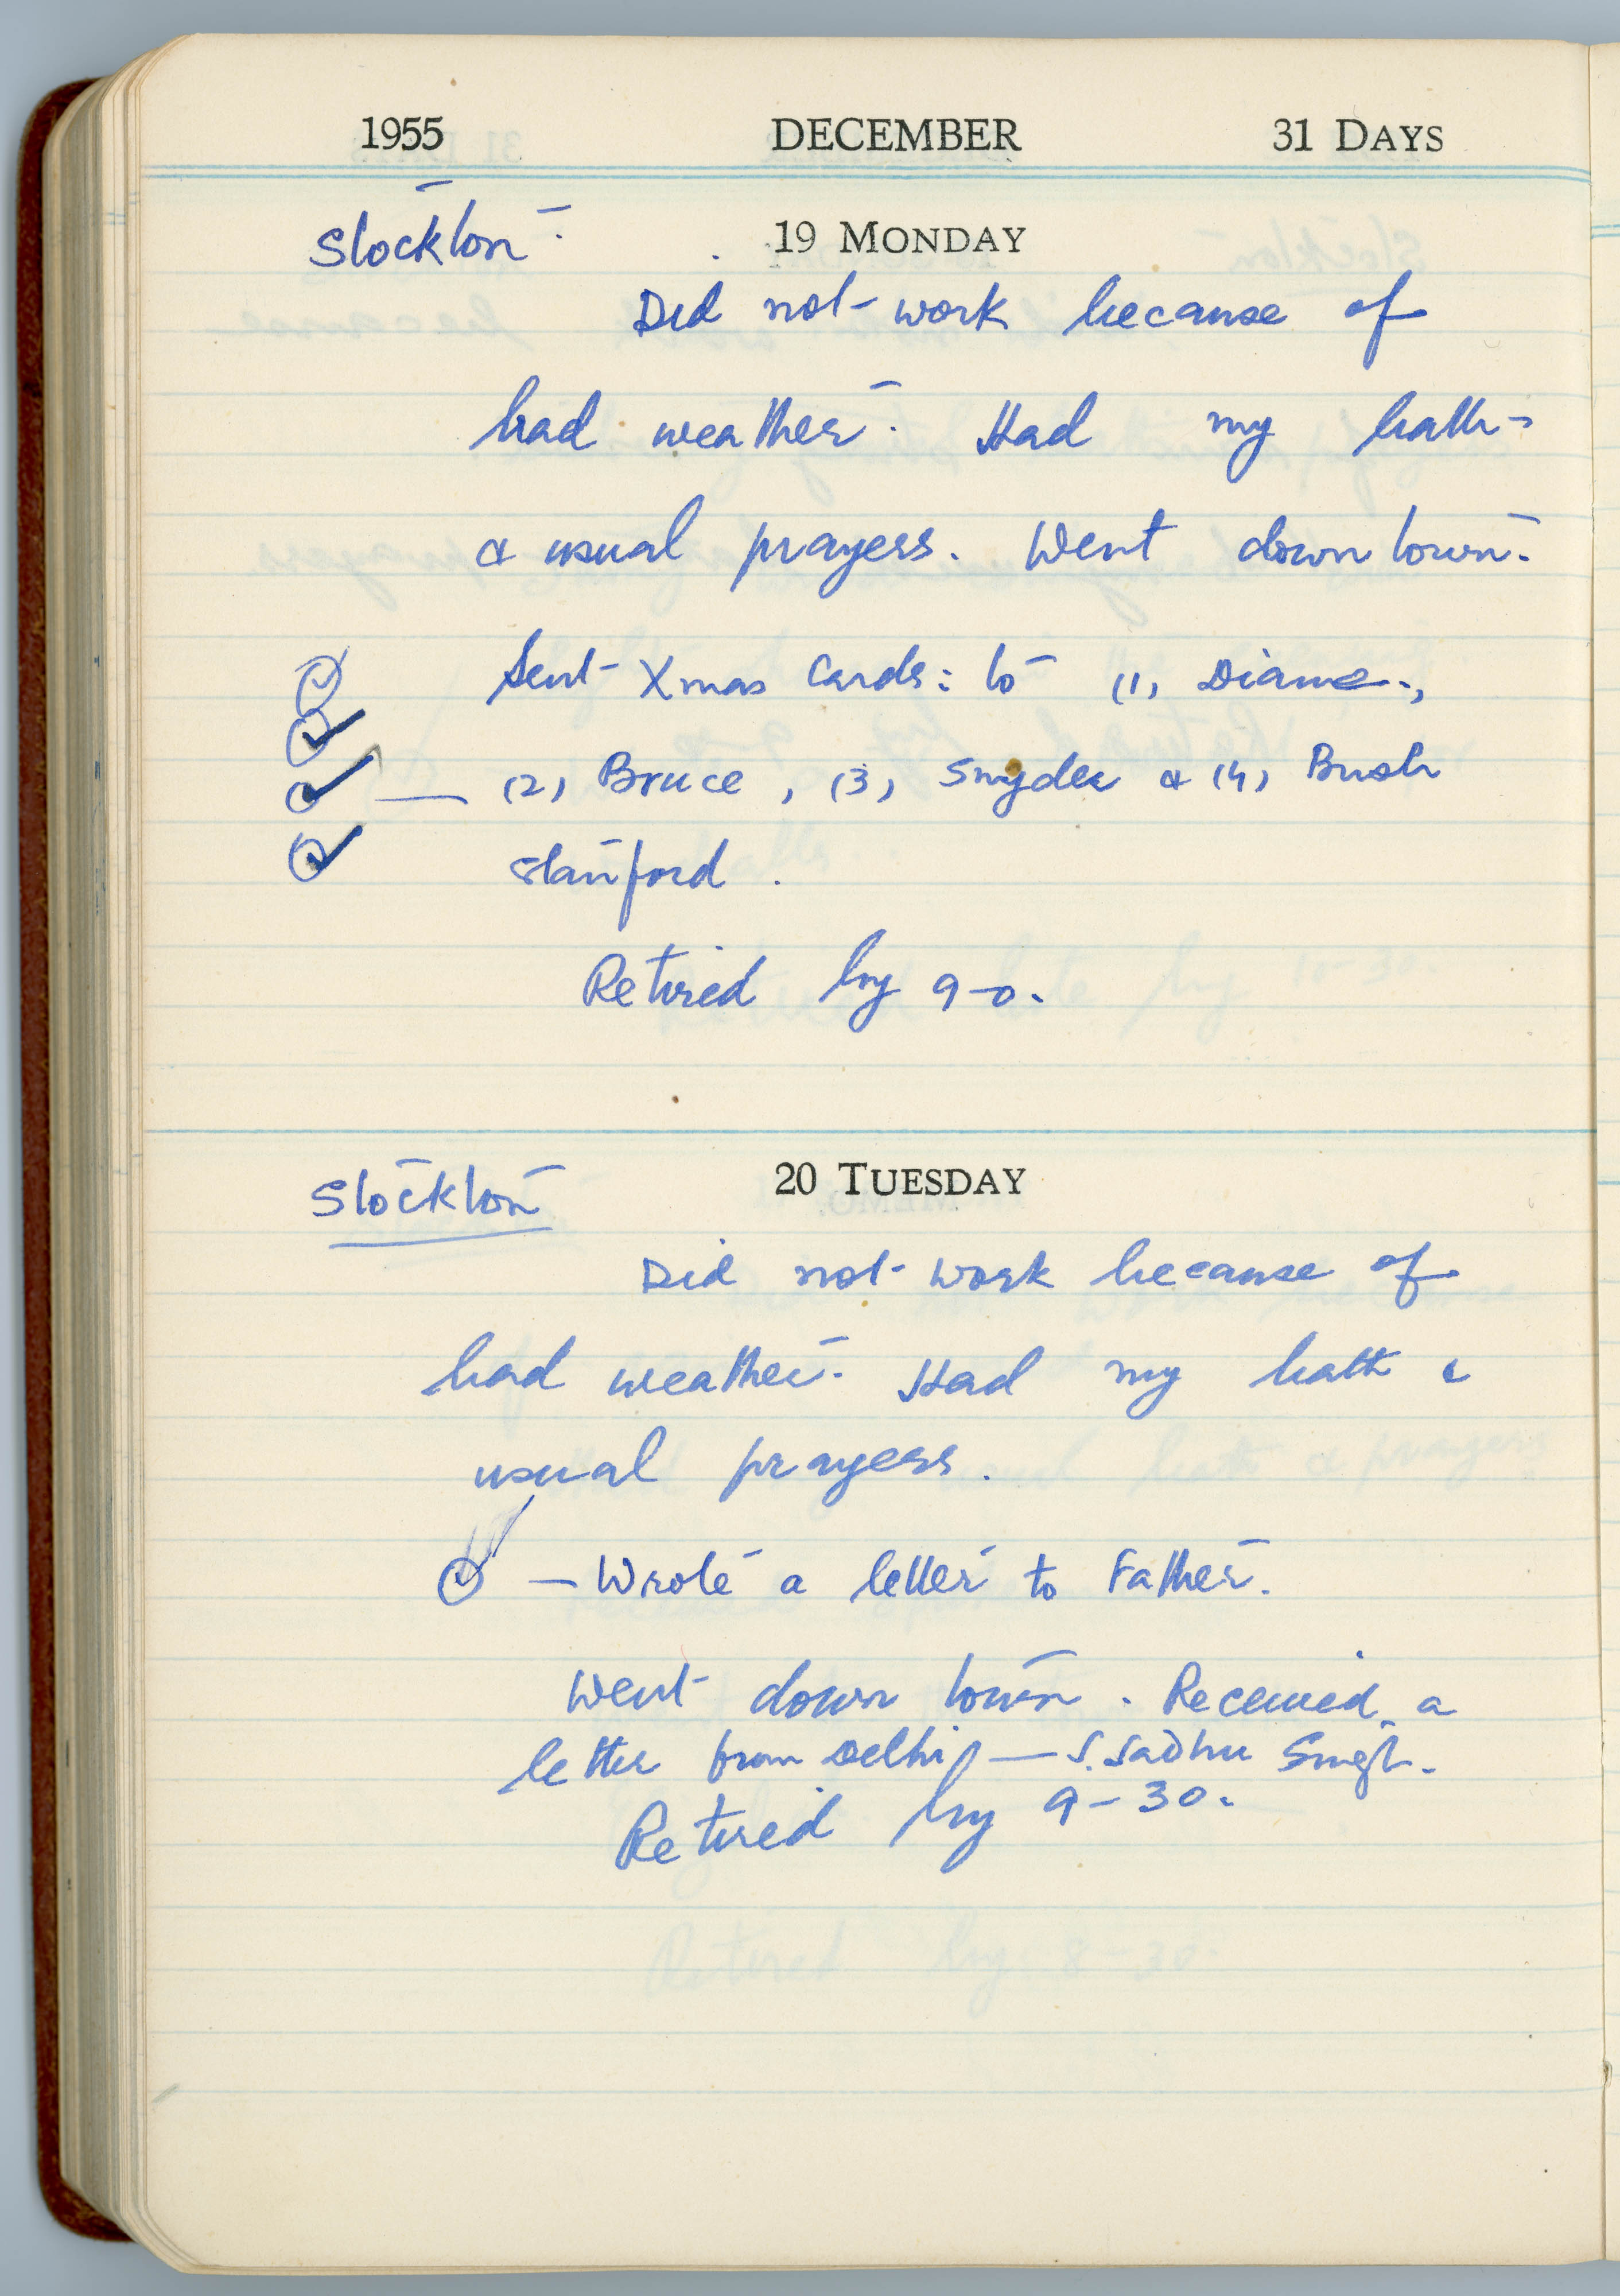 1955 DECEMBER 31 DAYS
Stockton. 19 MONDAY
Did not work because of
bad weather. Had my bath
& usual prayers. Went down town.
Sent Xmas Cards: to (1) Diame.,
(2) Bruce, (3) Snyder & (4) Bush
Stanford.
Retired by 9-0.
Stockton 20 TUESDAY
Did not work because of
bad weather. Had my bath &
usual prayers.
— Wrote a letter to Father.
Went down town. Received a
letter from Delhi — S. Sadhu Singh.
Retired by 9-30.